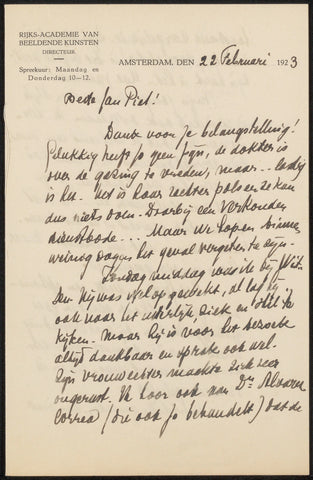 RIJKS-ACADEMIE VAN
BEELDENDE KUNSTEN
DIRECTEUR.
Spreekuur: Maandag en
Donderdag 10—12.
AMSTERDAM, DEN 22 Februari 1923
Beste Jan Piet!
Dank voor je belangstelling!
Gelukkig heeft ze geen pijn, de dokter is
over de gezing te vreden, maar... lastig
is het. Het is haar rechter pols en ze kan
dus niets doen. Daarbij een verkouden
dienstbode... Maar we hopen binnen
weinig dagen het geval vergeten te zijn.
Zondag middag was ik bij Wit-
sen. Hij was wel op gewekt, al lag hij
ook naar het uiterlijk ziek en stil te
kijken. Maar hij is voor het bezoek
altijd dankbaar en sprak ook wel.
Zijn vrouw echter maakte zich zeer
ongerust. Ik hoor ook van Dr. Alvares
Correa (die ook Jo behandelt) dat de